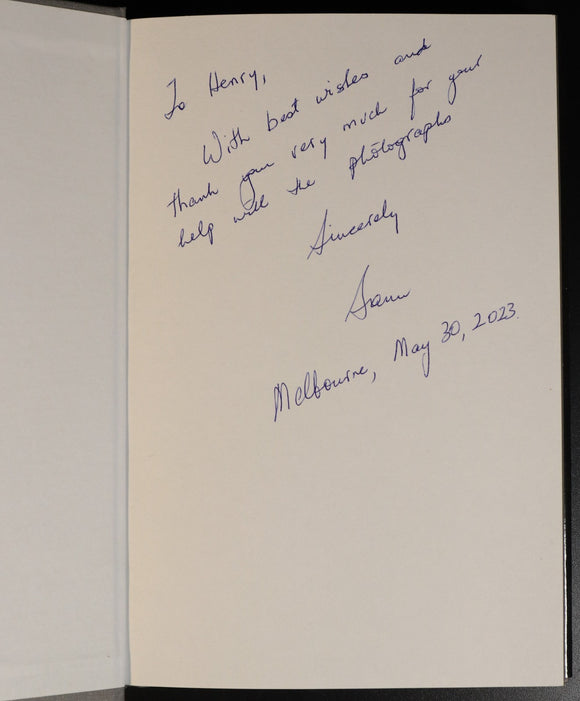 To Henry,
With best wishes and
thank you very much for your
help with the photographs
Sincerely
Melbourne, May 30, 2023.